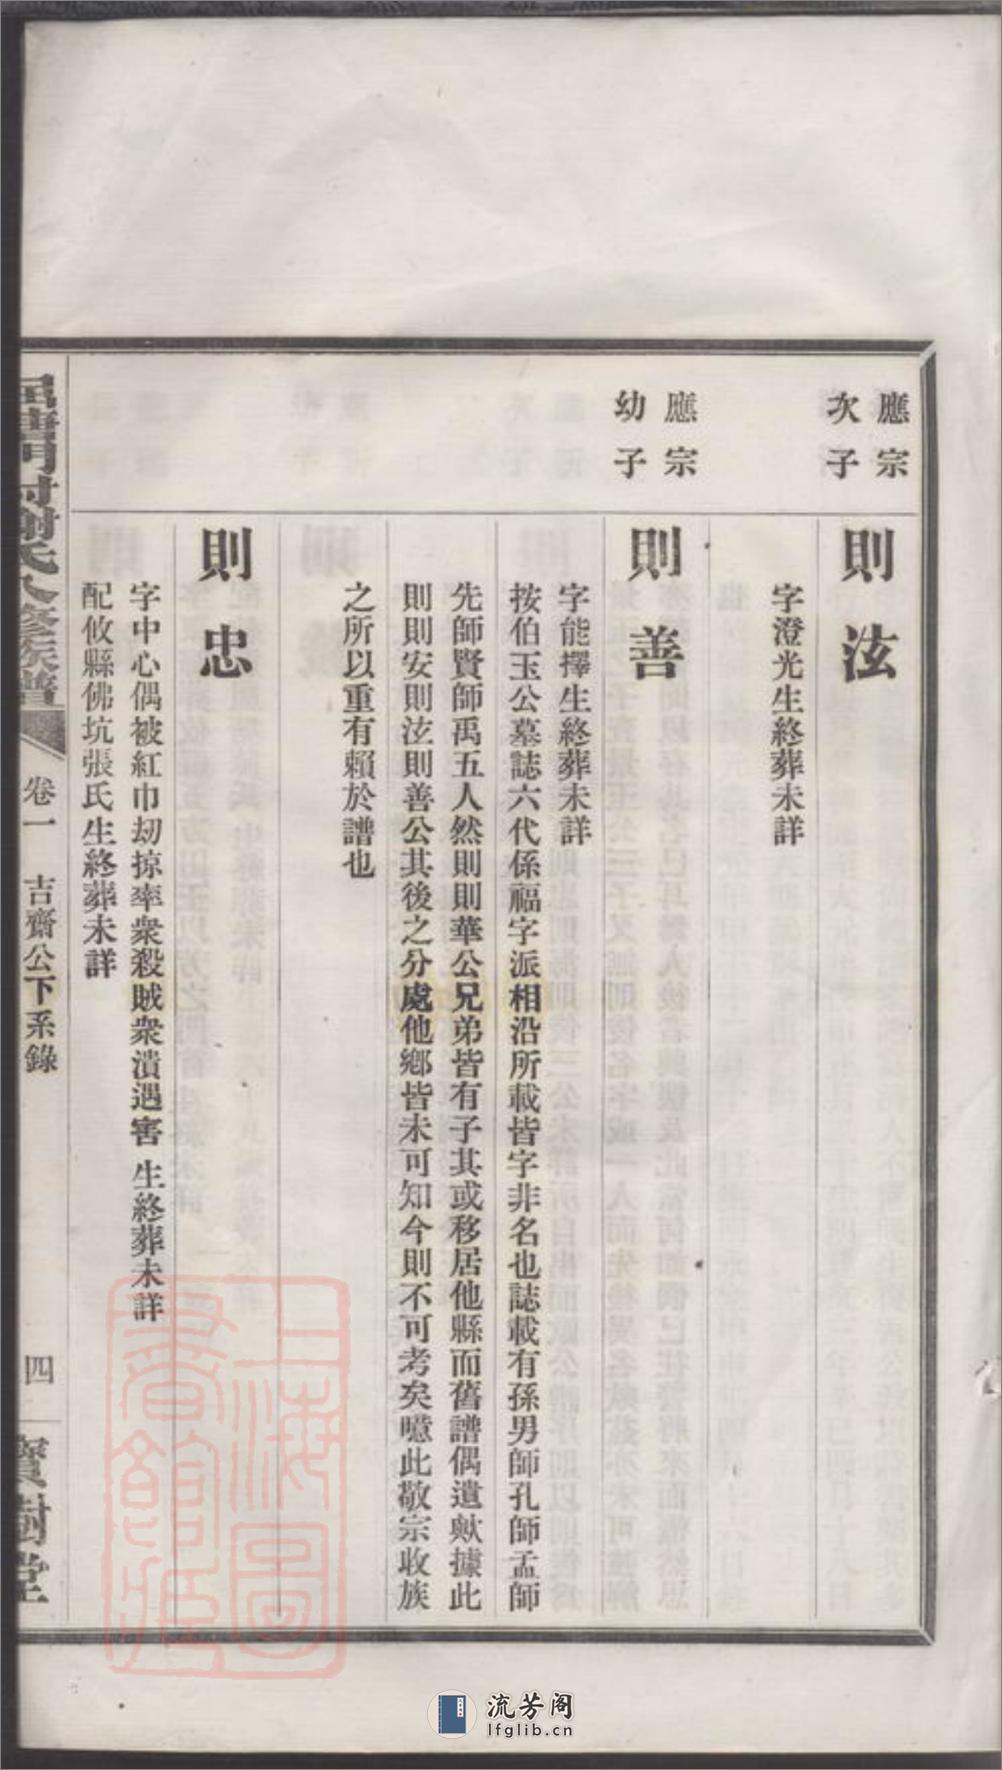 應宗
次子
則泫
字澄光生終葬未詳
應宗
幼子
則善
字能擇生終葬未詳
按伯玉公墓誌六代係福字派相沿所載皆字非名也誌載有孫男師孔師孟師
先師賢師禹五人然則則華公兄弟皆有子其或移居他縣而舊譜偶遺歟據此
則則安則泫則善公其後之分處他鄉皆未可知今則不可考矣噫此敬宗收族
之所以重有賴於譜也
則忠
字中心偶被紅巾刧掠率衆殺賊衆潰遇害 生終葬未詳
配攸縣佛坑張氏生終葬未詳
村謝氏八修族譜
卷一 吉齋公下系錄
四
寶樹堂
上海圖書館藏
流芳阁
lfglib.cn